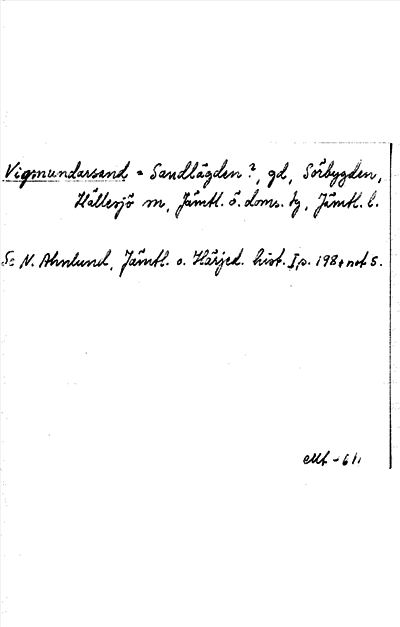 Vigmundarsand = Sandlägden?, gd, Sörbygden,
Hällesjö sn, Jämtl. ö. doms. tg, Jämtl. l.
Se N. Ahnlund, Jämtl. o. Härjed. hist. I, p. 198 + not 5.